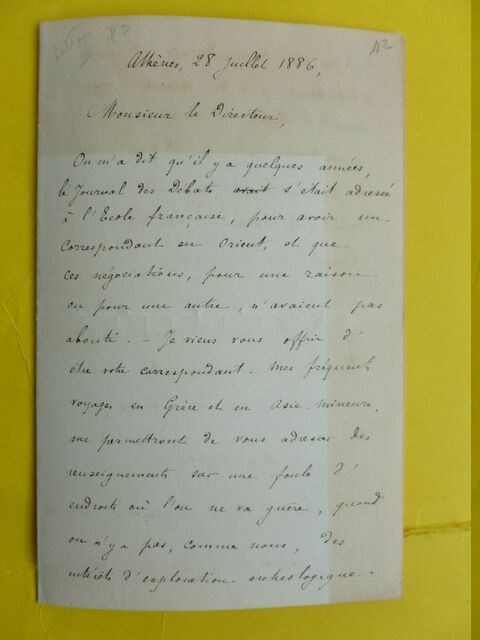 42
Athènes, 28 Juillet 1886,
Monsieur le Directeur,
On m'a dit qu'il y a quelques années,
le Journal des Débats avait s'était adressé
à l'Ecole française, pour avoir un
correspondant en Orient, et que
ces négociations, pour une raison
ou pour une autre, n'avaient pas
abouti. — Je viens vous offrir d'
être votre correspondant. Mes fréquents
voyages en Grèce et en Asie-mineure,
me permettront de vous adresser des
renseignements sur une foule d'
endroits où l'on ne va guère, quand
on n'y a pas, comme nous, des
intérêts d'exploration archéologique.